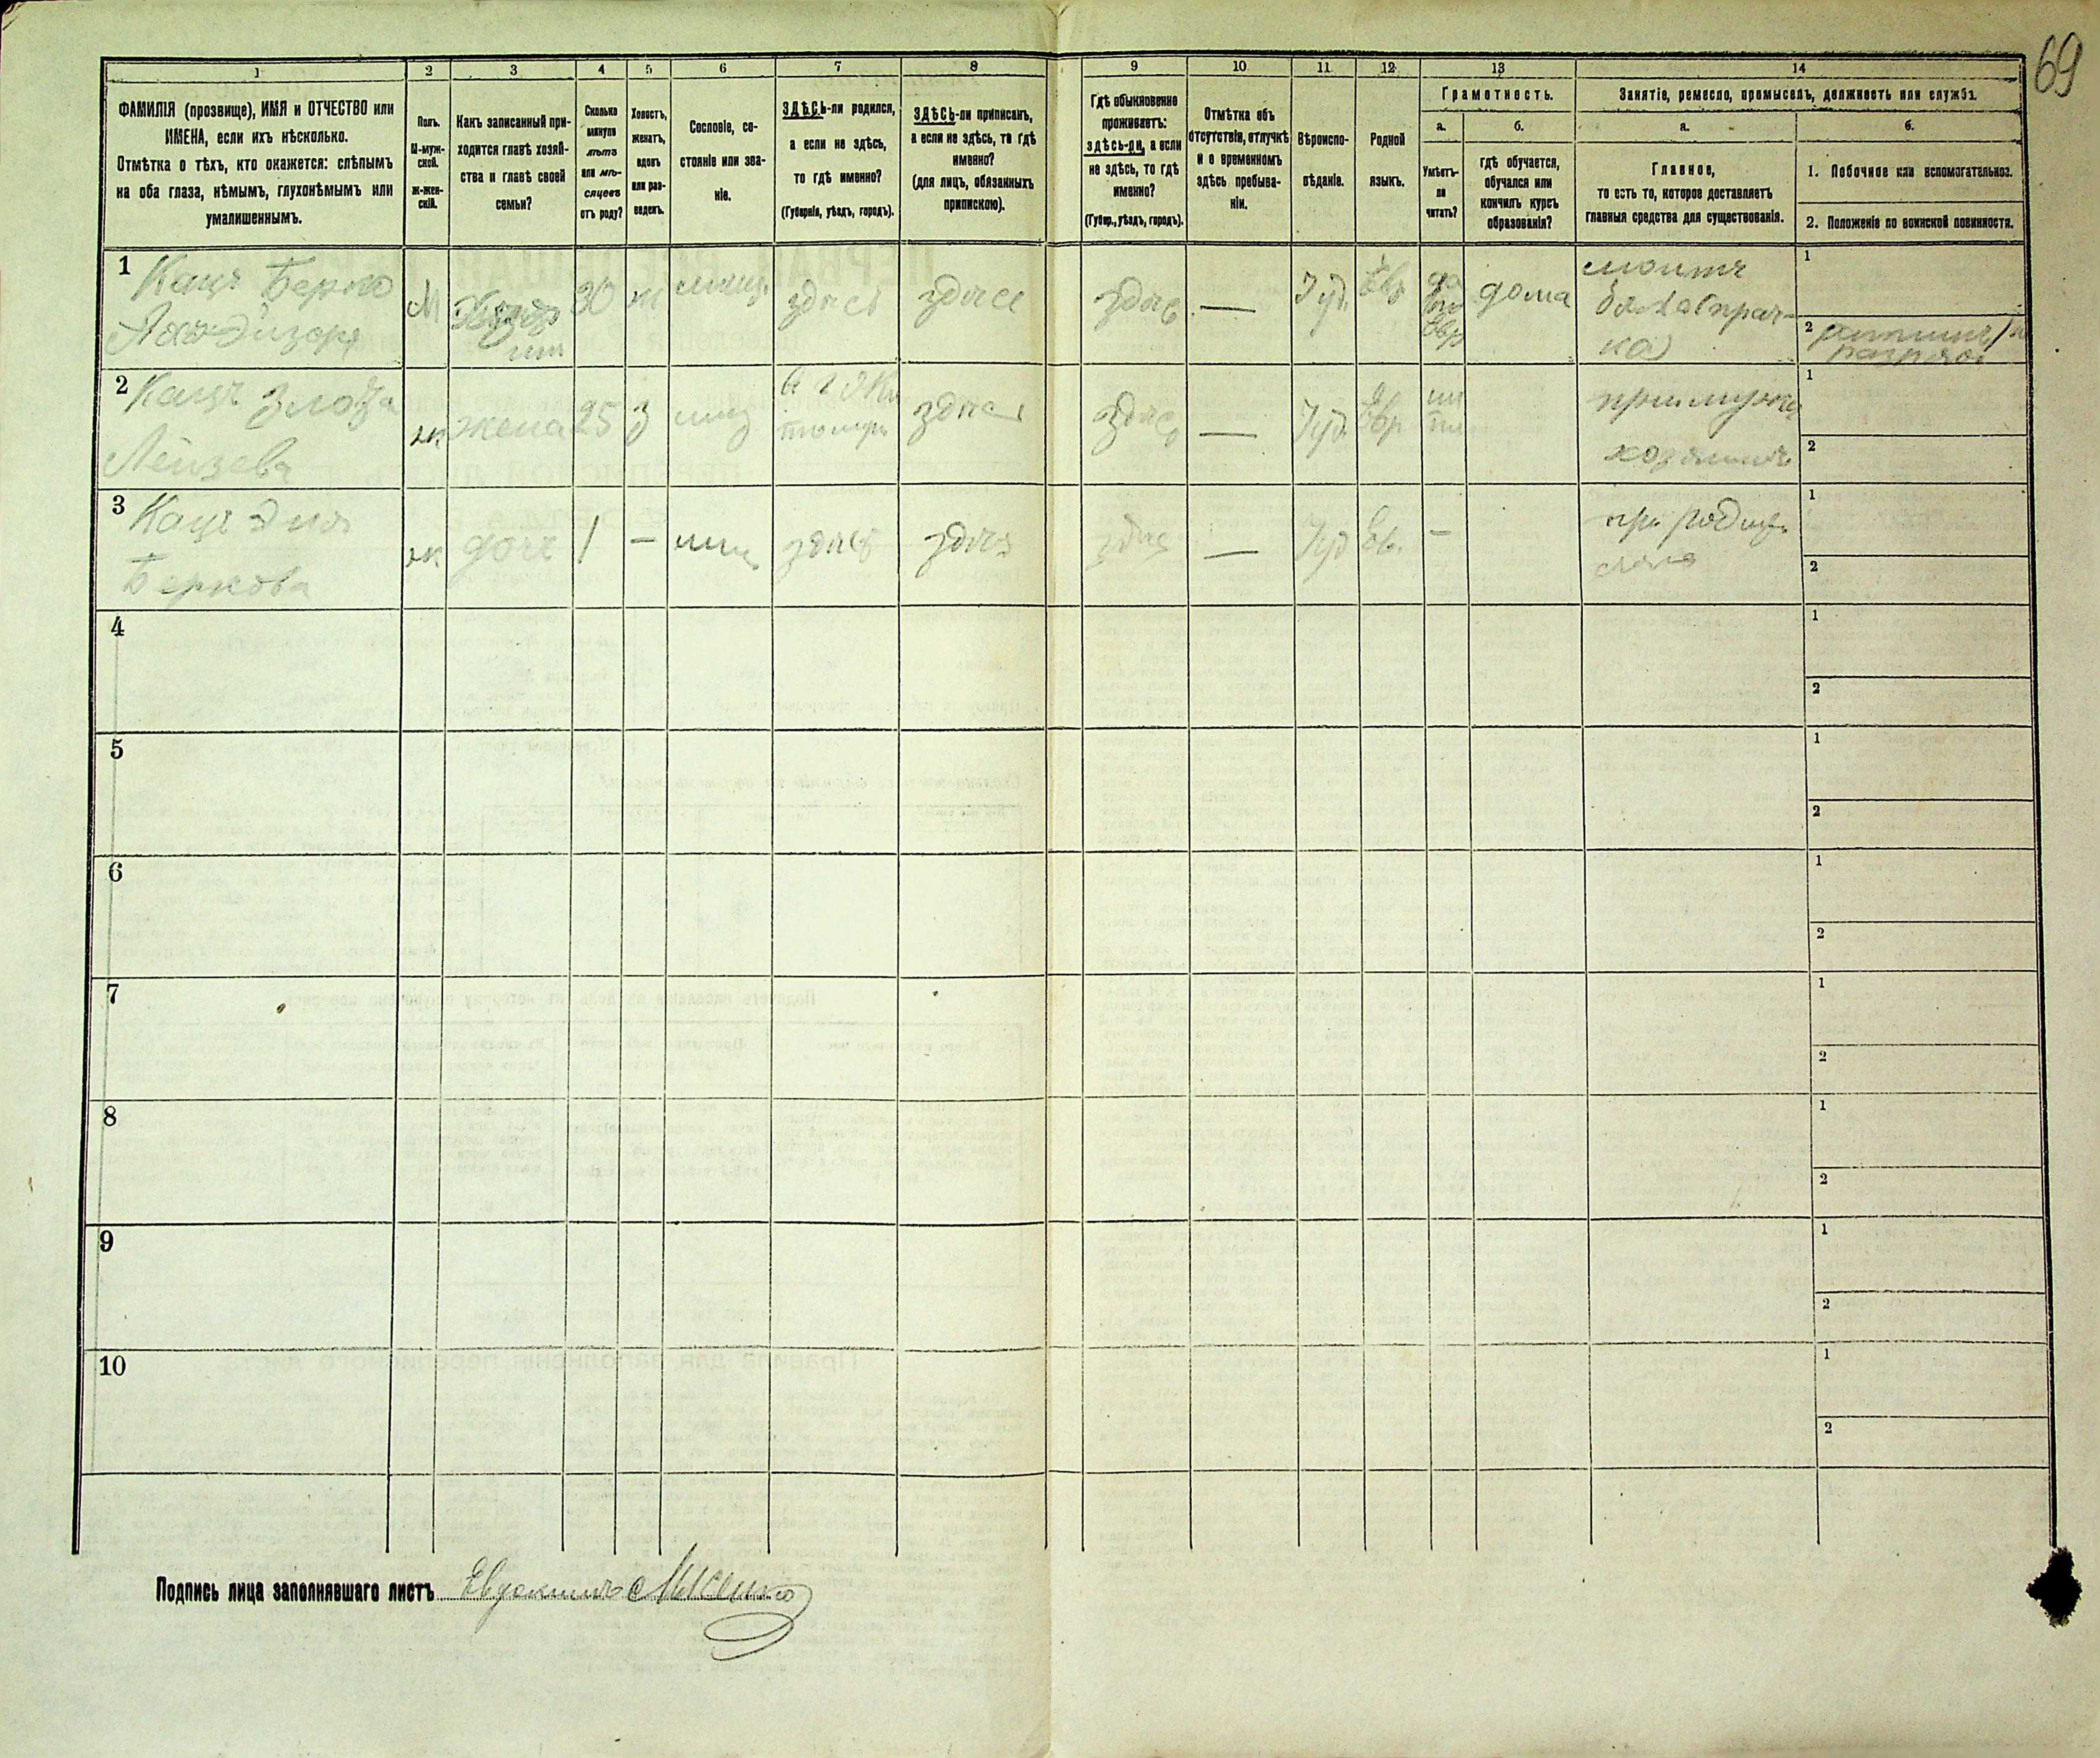 69
1 2 3 4 5 6 7 8 9 10 11 12 13 14
ФАМИЛІЯ (прозвище), ИМЯ и ОТЧЕСТВО или
ИМЕНА, если ихъ нѣсколько.
Отмѣтка о тѣхъ, кто окажется: слѣпымъ
на оба глаза, нѣмымъ, глухонѣмымъ или
умалишеннымъ.
Полъ.
М-муж-
ской.
ж-жен-
скій.
Какъ записанный при-
ходится главѣ хозяй-
ства и главѣ своей
семьи?
Сколько
минуло
лѣтъ
или мѣ-
сяцевъ
отъ роду?
Холостъ,
женатъ,
вдовъ
или раз-
веденъ.
Сословіе, со-
стояніе или зва-
ніе.
ЗДѢСЬ-ли родился,
а если не здѣсь,
то гдѣ именно?
(Губернія, уѣздъ, городъ).
ЗДѢСЬ-ли приписанъ,
а если не здѣсь, то гдѣ
именно?
(для лицъ, обязанныхъ
припискою).
Гдѣ обыкновенно
проживаетъ:
здѣсь-ли, а если
не здѣсь, то гдѣ
именно?
(Губер., уѣздъ, городъ).
Отмѣтка объ
отсутствіи, отлучкѣ
и о временномъ
здѣсь пребыва-
ніи.
Вѣроиспо-
вѣданіе.
Родной
языкъ.
Грамотность.
а.
Умѣетъ-
ли
читать?
б.
гдѣ обучается,
обучался или
кончилъ курсъ
образованія?
Занятіе, ремесло, промыселъ, должность или служба.
а.
Главное,
то есть то, которое доставляетъ
главныя средства для существованія.
б.
1. Побочное или вспомогательное.
2. Положеніе по воинской повинности.
1 Кацъ Берко
М 30 ж здѣсь здѣсь здѣсь — Іуд. Евр да дома
1
2
2 Кацъ
Лейзева
ж жена 25 з здѣсь здѣсь — Іуд. Евр
1
2
3 Кацъ Эня
Беркова
ж дочь 1 — мѣщ здѣсь здѣсь здѣсь — Іуд Ев. — при родите
ляхъ
1
2
4
1
2
5
1
2
6
1
2
7
1
2
8
1
2
9
1
2
10
1
2
Подпись лица заполнявшаго листъ Евдокимъ Лысенко